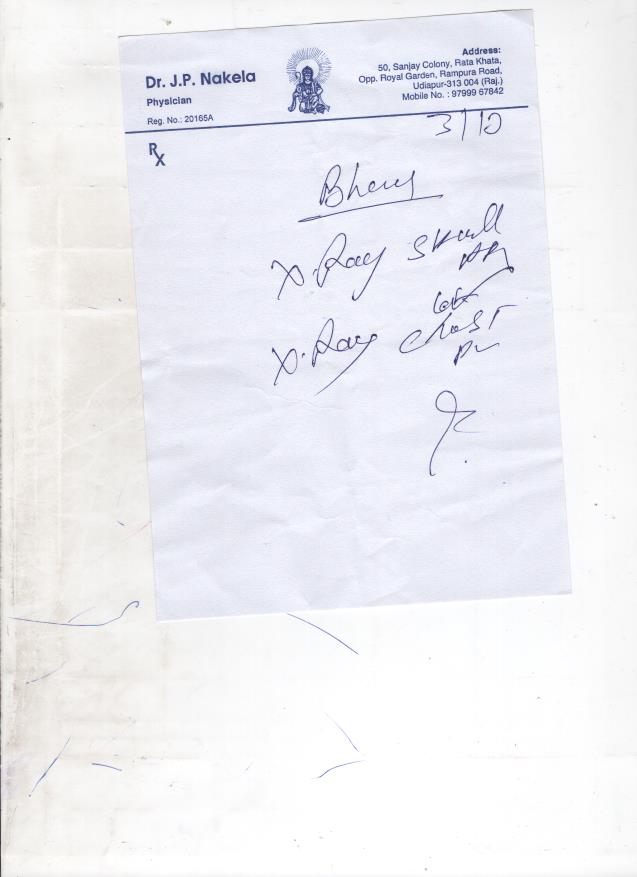 Dr. J.P. Nakela
Physician
Reg. No.: 20165A
Address:
50, Sanjay Colony, Rata Khata,
Opp. Royal Garden, Rampura Road,
Udiapur-313 004 (Raj.)
Mobile No. : 97999 67842
3/10
Rx
X.Ray Skull
X.Ray Chest